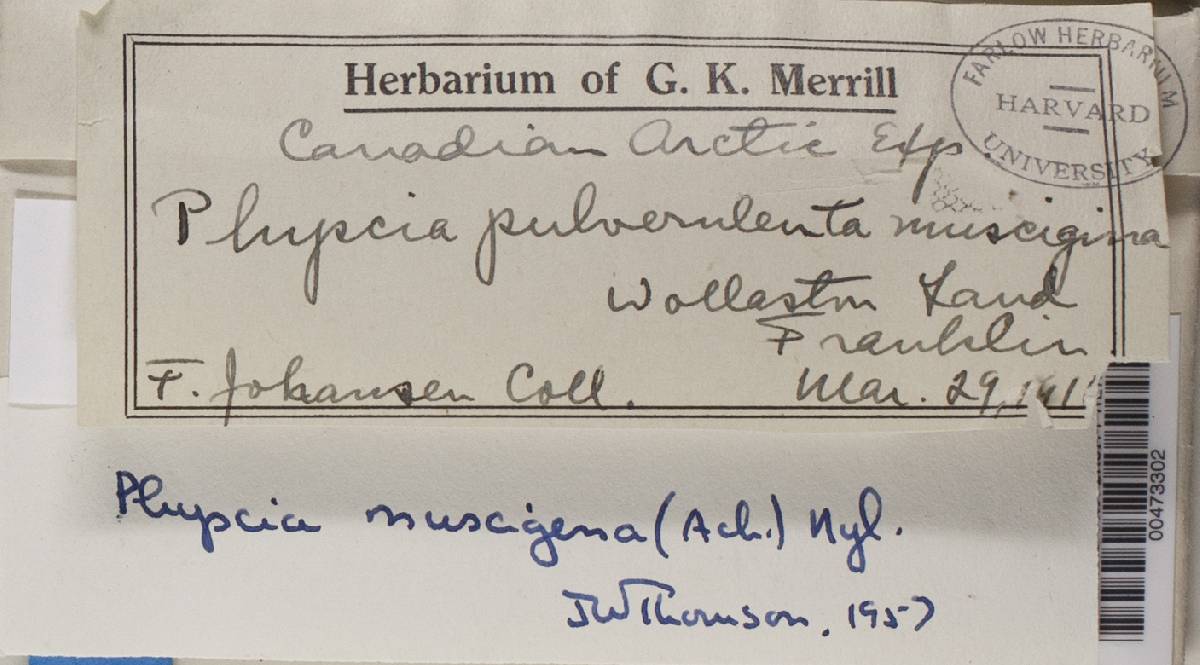 Herbarium of G. K. Merrill
FARLOW HERBARIUM
HARVARD
UNIVERSITY
Canadian Arctic Exp.
Physcia pulverulenta muscigina
Wollaston Land
Franklin
F. Johansen Coll. Mar. 29,
Physcia muscigena (Ach.) Nyl.
JWThomson, 1957
00473302